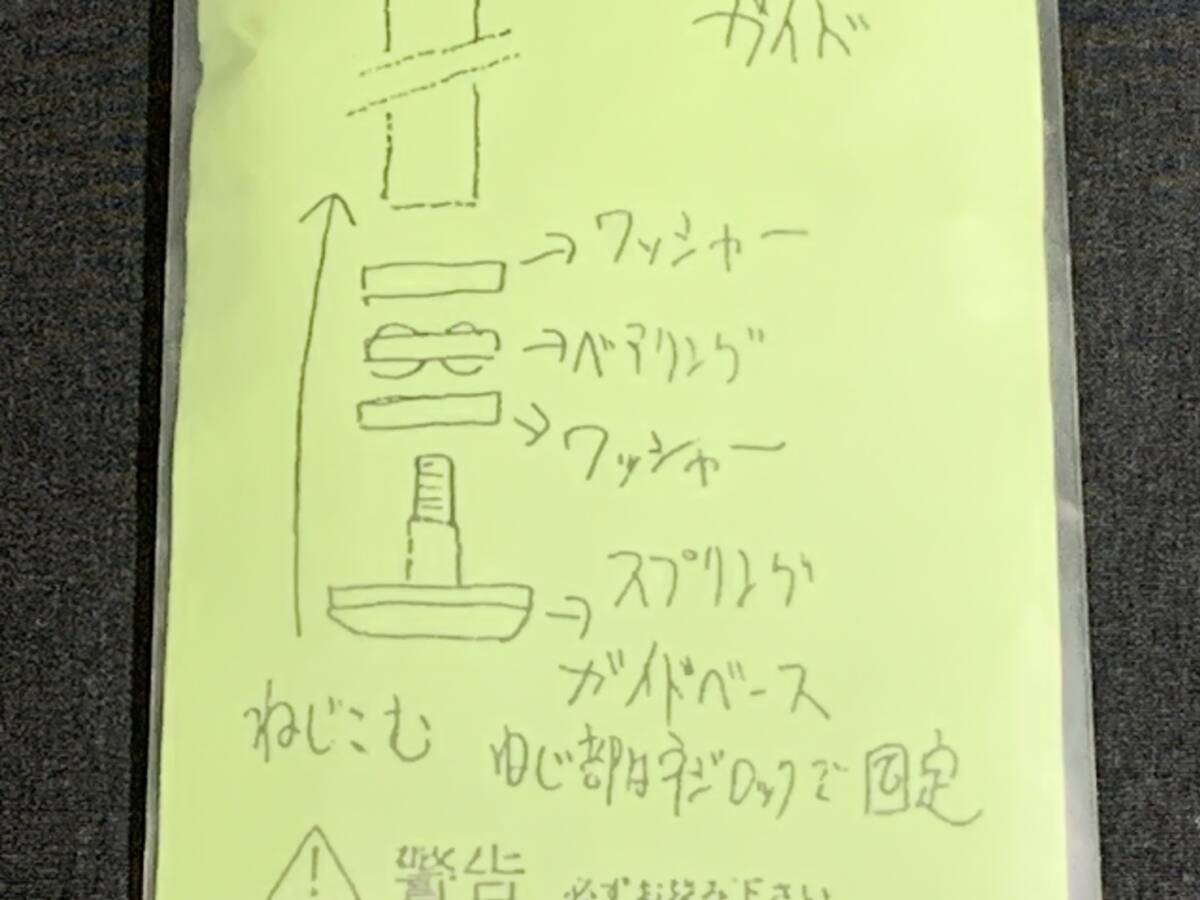 ガイド
ワッシャー
ベアリング
ワッシャー
スプリング
ガイドベース
ねじこむ
ねじ部はネジロックで固定
警告 必ずお読み下さい